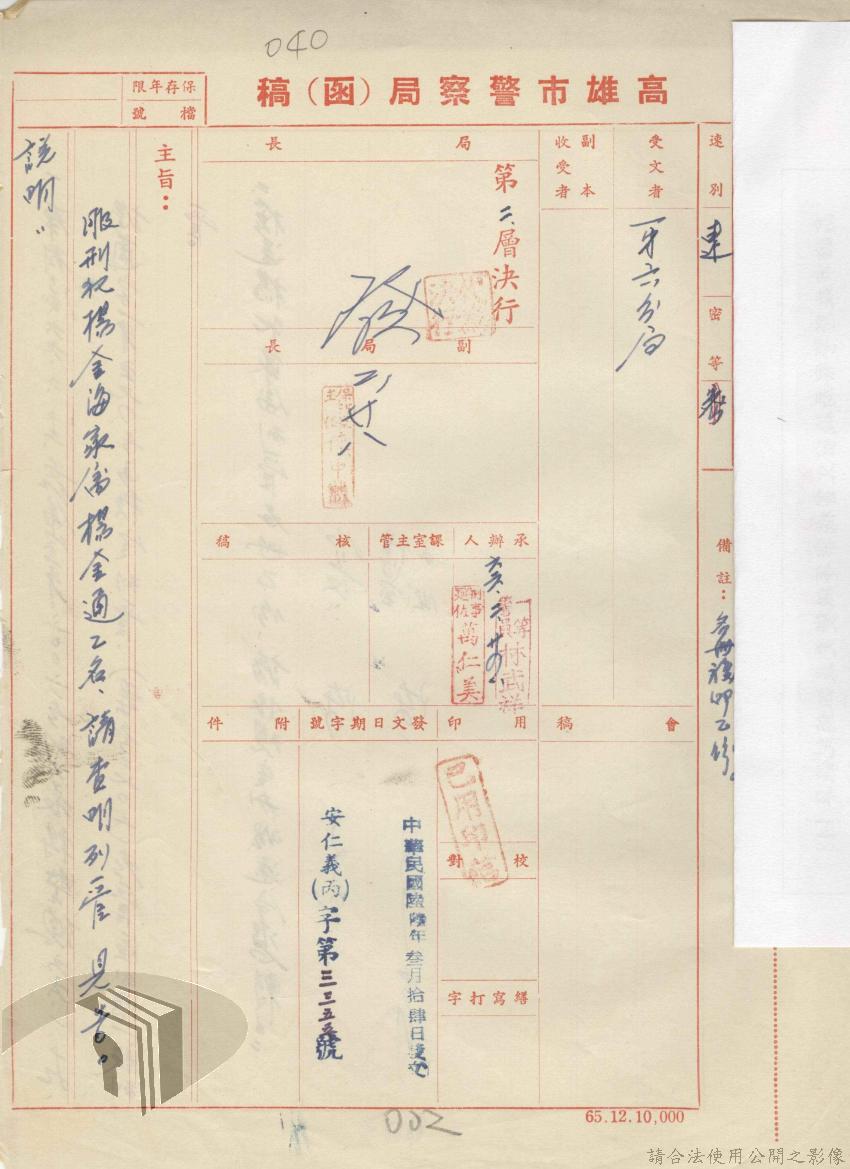 040
高雄市警察局（函）稿
保存年限
檔號
速別
速
密等
備註：
受文者
第六分局
副本
收受者
局長
第二層決行
發
副局長
二、廿八
承辦人
六六、二、廿四
一等警員林武祥
刑事巡佐萬仁美
課室主管
核稿
會稿
用印
已用印信
校對
繕寫打字
發文日期字號
中華民國陸陸年叁月拾肆日發文
安仁義(丙)字第三三五五號
附件
主旨：
服刑犯楊金海家屬楊金通乙名、請查明列管見告。
說明：
65.12.10,000
002
請合法使用公開之影像